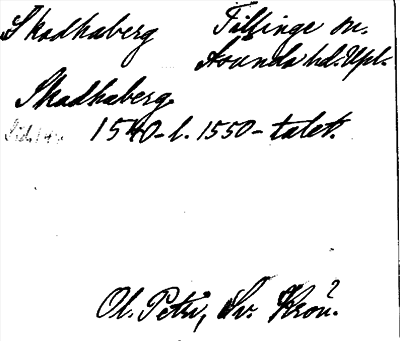 Skadhaberg Fillinge sn.
Asunda hd. Upl.
Skadhaberg
1540- l. 1550-talet.
Ol. Petri, Sv. Krön.